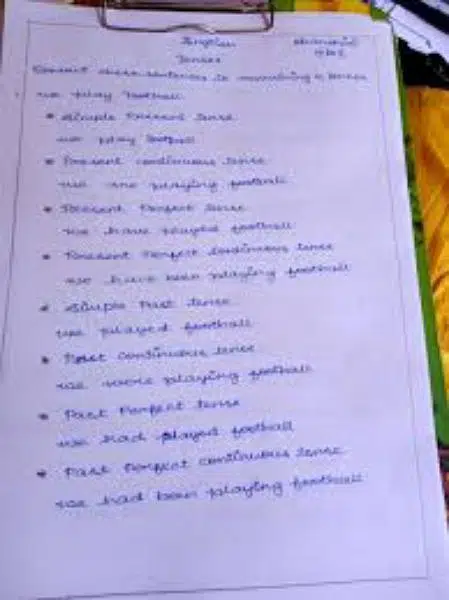 English
Tenses
Convert these sentences in remaining tenses
we play football.
• Simple Present Tense
we play football
• Present continuous tense
we are playing football
• Present Perfect tense
we have played football
• Present Perfect Continuous tense
we have been playing football
• Simple Past tense
we played football
• Past continuous tense
we were playing football
• Past Perfect tense
we had played football
• Past Perfect continuous tense
we had been playing football